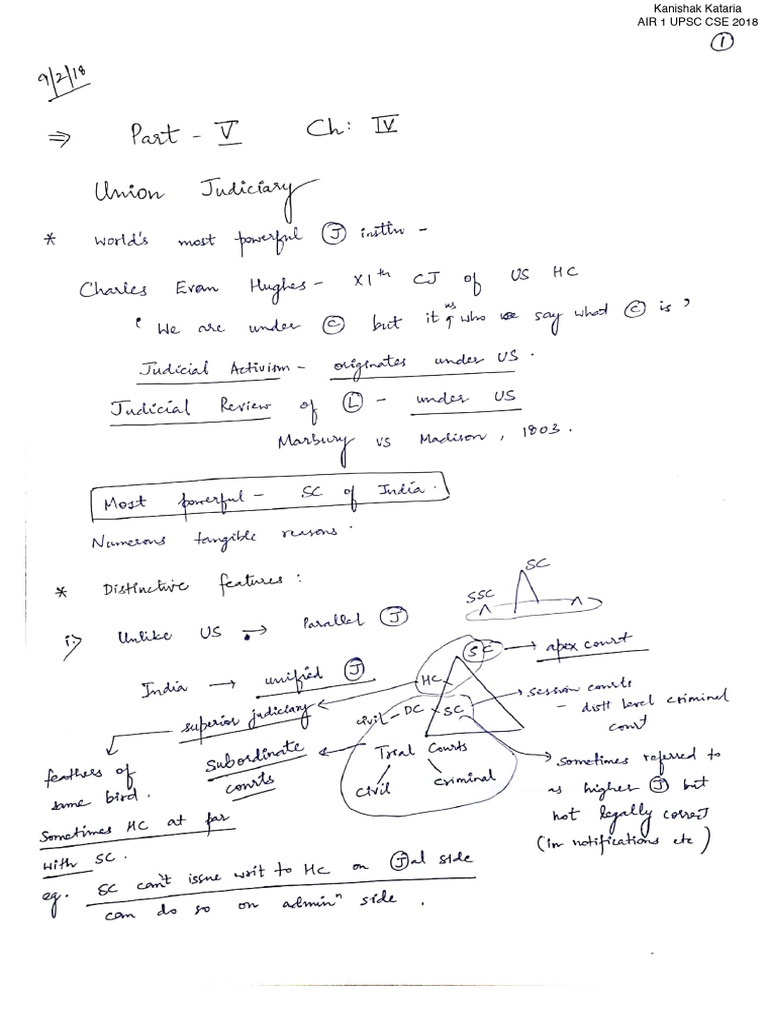 Kanishak Kataria
AIR 1 UPSC CSE 2018
1
9/2/18
⇒ Part - V Ch: IV
Union Judiciary
* World's most powerful Ⓙ instⁿ -
Charles Evan Hughes - XIth CJ of US HC
'We are under Ⓒ but it is who we say what Ⓒ is'
Judicial Activism - originates under US.
Judicial Review of Ⓛ - under US
Marbury vs Madison, 1803.
Most powerful - SC of India.
Numerous tangible reasons.
* Distinctive features:
SC
SSC
i) Unlike US → Parallel Ⓙ
SC → apex court
India → unified Ⓙ
HC
superior judiciary
civil - DC SC
session courts
- distt level criminal
court
feathers of
same bird.
subordinate
courts
Trial Courts
civil criminal
sometimes referred to
as higher Ⓙ but
not legally correct
(in notifications etc)
Sometimes HC at par
with SC.
eg. SC can't issue writ to HC on Ⓙal side
can do so on adminⁿ side.